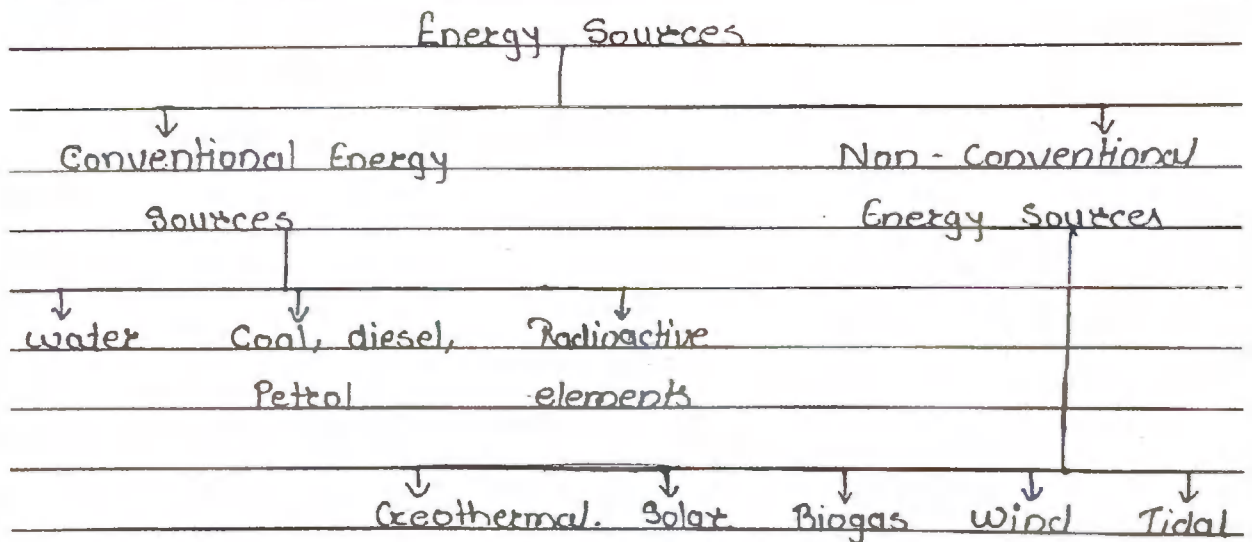 Energy Sources
Conventional Energy Non-Conventional
Sources Energy Sources
water Coal, diesel, Radioactive
Petrol elements
Geothermal. Solar Biogas Wind Tidal